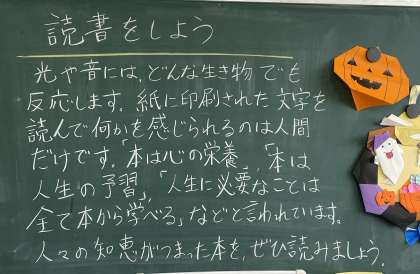 読書をしよう
光や音には、どんな生き物でも
反応します。紙に印刷された文字を
読んで何かを感じられるのは人間
だけです。「本は心の栄養」、「本は
人生の予習」、「人生に必要なことは
全て本から学べる」などと言われています。
人々の知恵がつまった本を、ぜひ読みましょう。